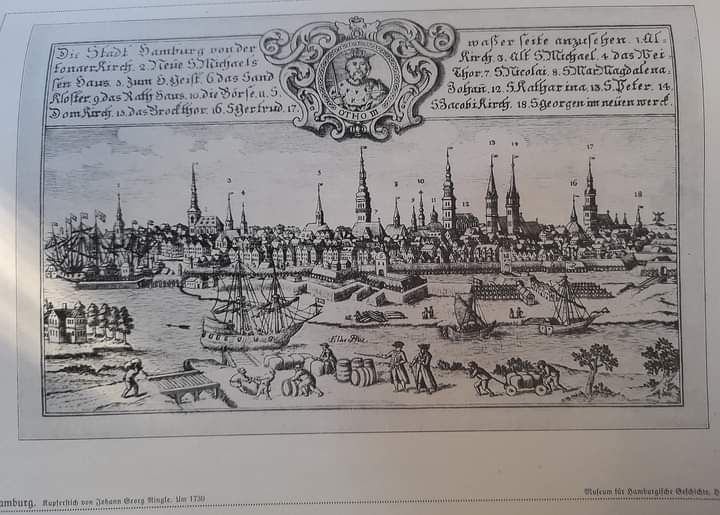 Die Stadt Hamburg von der waßer seite anzusehen. 1. Al-
tonaer Kirch. 2. Neue S Michaels Kirch. 3. Alt S Michael. 4 das Wei-
sen Haus. 5. Zum H. Geist. 6 das Sand Thor. 7. S Nicolai. 8. S Mar Magdalena.
Kloster. 9 das Rath Haus. 10. die Börse. 11. S Johañ. 12. S Katharina. 13. S Peter. 14.
Dom Kirch. 15. das Brockthor. 16. S Gertrud. 17. S Jacobi Kirch. 18. S Georgen im neuen werck.
OTHO III
1
2
3
4
5
7
8
9
10
12
13
14
16
17
18
Elbe Flus
amburg. Kupferstich von Johann Georg Ringle. Um 1730
Museum für Hamburgische Geschichte, H